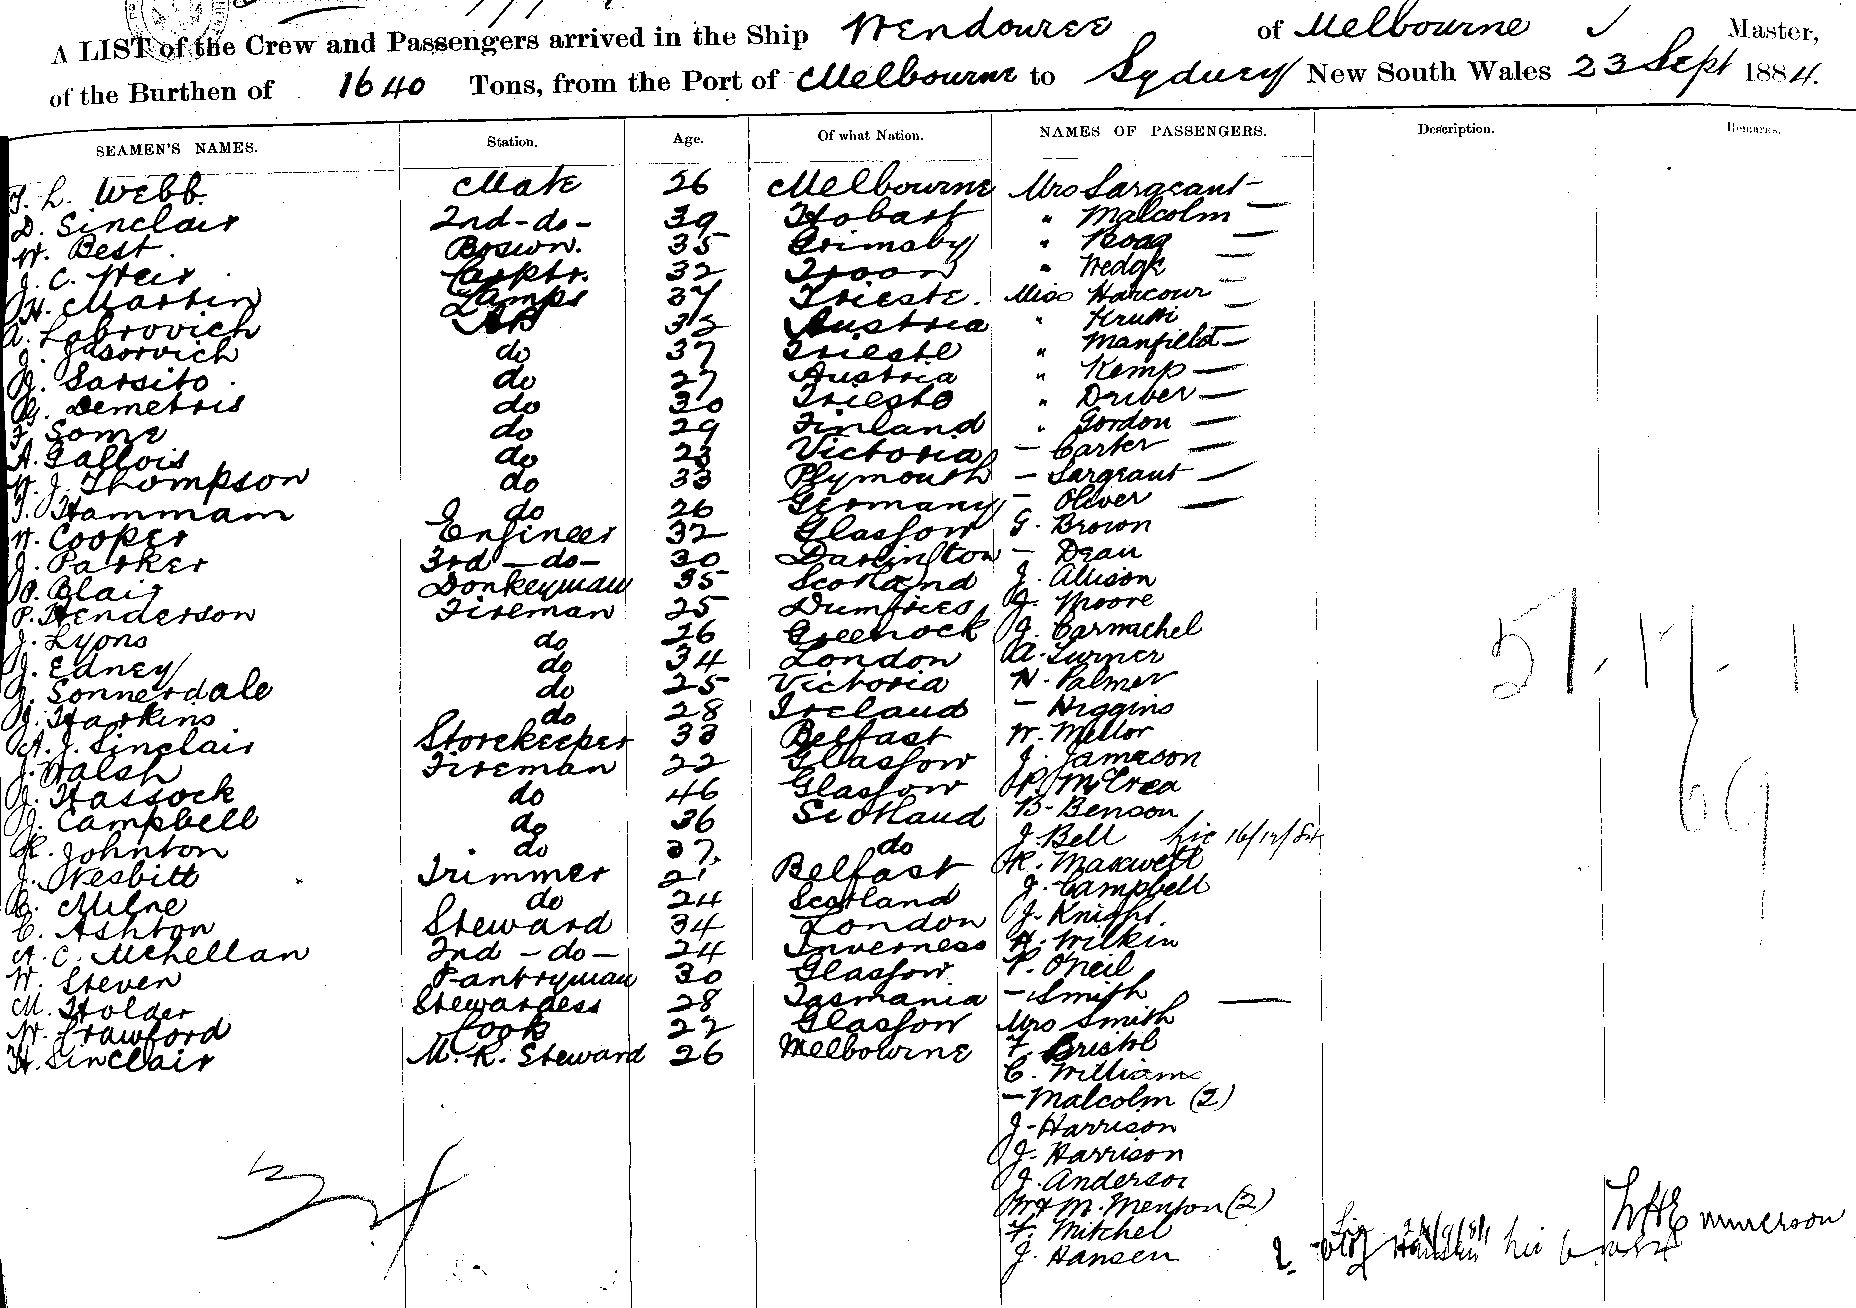 A LIST of the Crew and Passengers arrived in the Ship Wendouree of Melbourne Master,
of the Burthen of 1640 Tons, from the Port of Melbourne to Sydney New South Wales 23 Sept 1884.
SEAMEN'S NAMES. Station. Age. Of what Nation. NAMES OF PASSENGERS. Description. Remarks.
L. Webb. Mate 26 Melbourne Mrs Sargeant —
D. Sinclair 2nd - do - 39 Hobart " Malcolm —
W. Best. Boswn. 35 Grimsby " Boag —
J. C. Weir Carptr. 32 Troon " Wedge —
H. Martin Lamps 37 Trieste. Miss Harcour —
A. Labrovich AB 32 Austria "
J. do 37 Trieste " Manfield —
J. Sarsito. do 27 Austria " Kemp —
G. Demetris do 30 Triesto " Driver —
F. Some do 29 Finland " Gordon —
A. Gallois do 23 Victoria — Carter —
W. J. Thompson do 33 Plymouth — Sargeant —
J. Hammam do 26 Germany — Oliver —
W. Cooper Engineer 32 Glasgow G. Brown
J. Parker 3rd - do - 30 Darlington — Dean
P. Blair Donkeyman 35 Scotland J. Allison
P. Henderson Fireman 25 Dumfries J. Moore
J. Lyons do 26 Greenock J. Carmachel
J. Edney do 34 London A. Turner
J. Sonnerdale do 25 Victoria W. Palmer
J. Harkins do 28 Ireland — Higgins
A. J. Sinclair Storekeeper 33 Belfast W. Mellor
J. Walsh Fireman 22 Glasgow J. Jamason
J. Hassock do 46 Glasgow P. McCrea
J. Campbell do 36 Scotland B. Benson
R. Johnton do 37 do J. Bell
J. Nesbitt Trimmer 21 Belfast R. Maxwell
C. Milne do 24 Scotland J. Campbell
C. Ashton Steward 34 London J. Knight.
A. C. McLellan 2nd - do - 24 Inverness H. Wilkin
W. Steven Pantryman 30 Glasgow P. O'Neil
M. Holder Stewardess 28 Tasmania — Smith —
W. Crawford Cook 27 Glasgow Mrs Smith
H. Sinclair M. R. Steward 26 Melbourne F. Bristol
C. Williams
— Malcolm (2)
J. Harrison
J. Harrison
J. Anderson
M. Menton (2)
F. Mitchel
J. Hansen